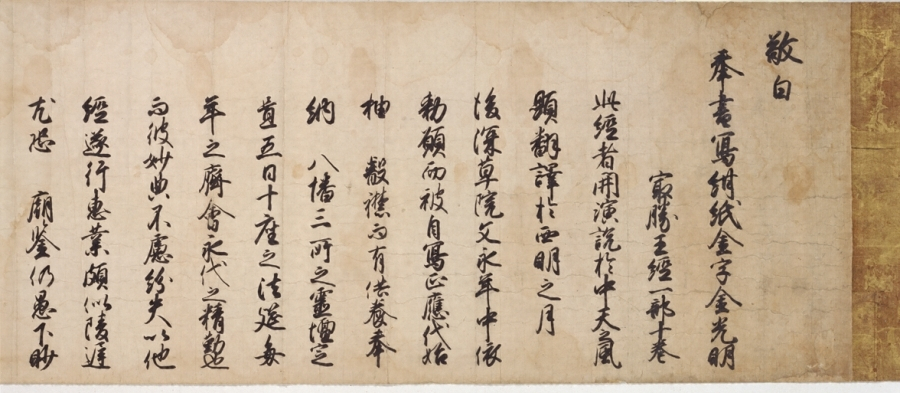 敬白
奉書寫紺紙金字金光明
寂勝王經一部十巻
此經者開演説於中天之風
顕翻譯於西明之月
後深草院文永年中依
勅願而被自寫正應代始
柚殻襟而有供養奉
納　八幡三所之靈壇定
置五日十座之法莚毎
年之齋會永代之精懃也
而彼妙典不慮紛失以他
經遂行恵業頗似陵遅
尤恐　廟鉴仍愚下眇